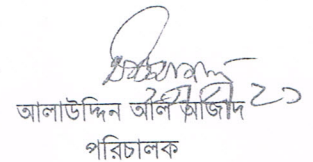 আলাউদ্দিন আল আজাদ
পরিচালক